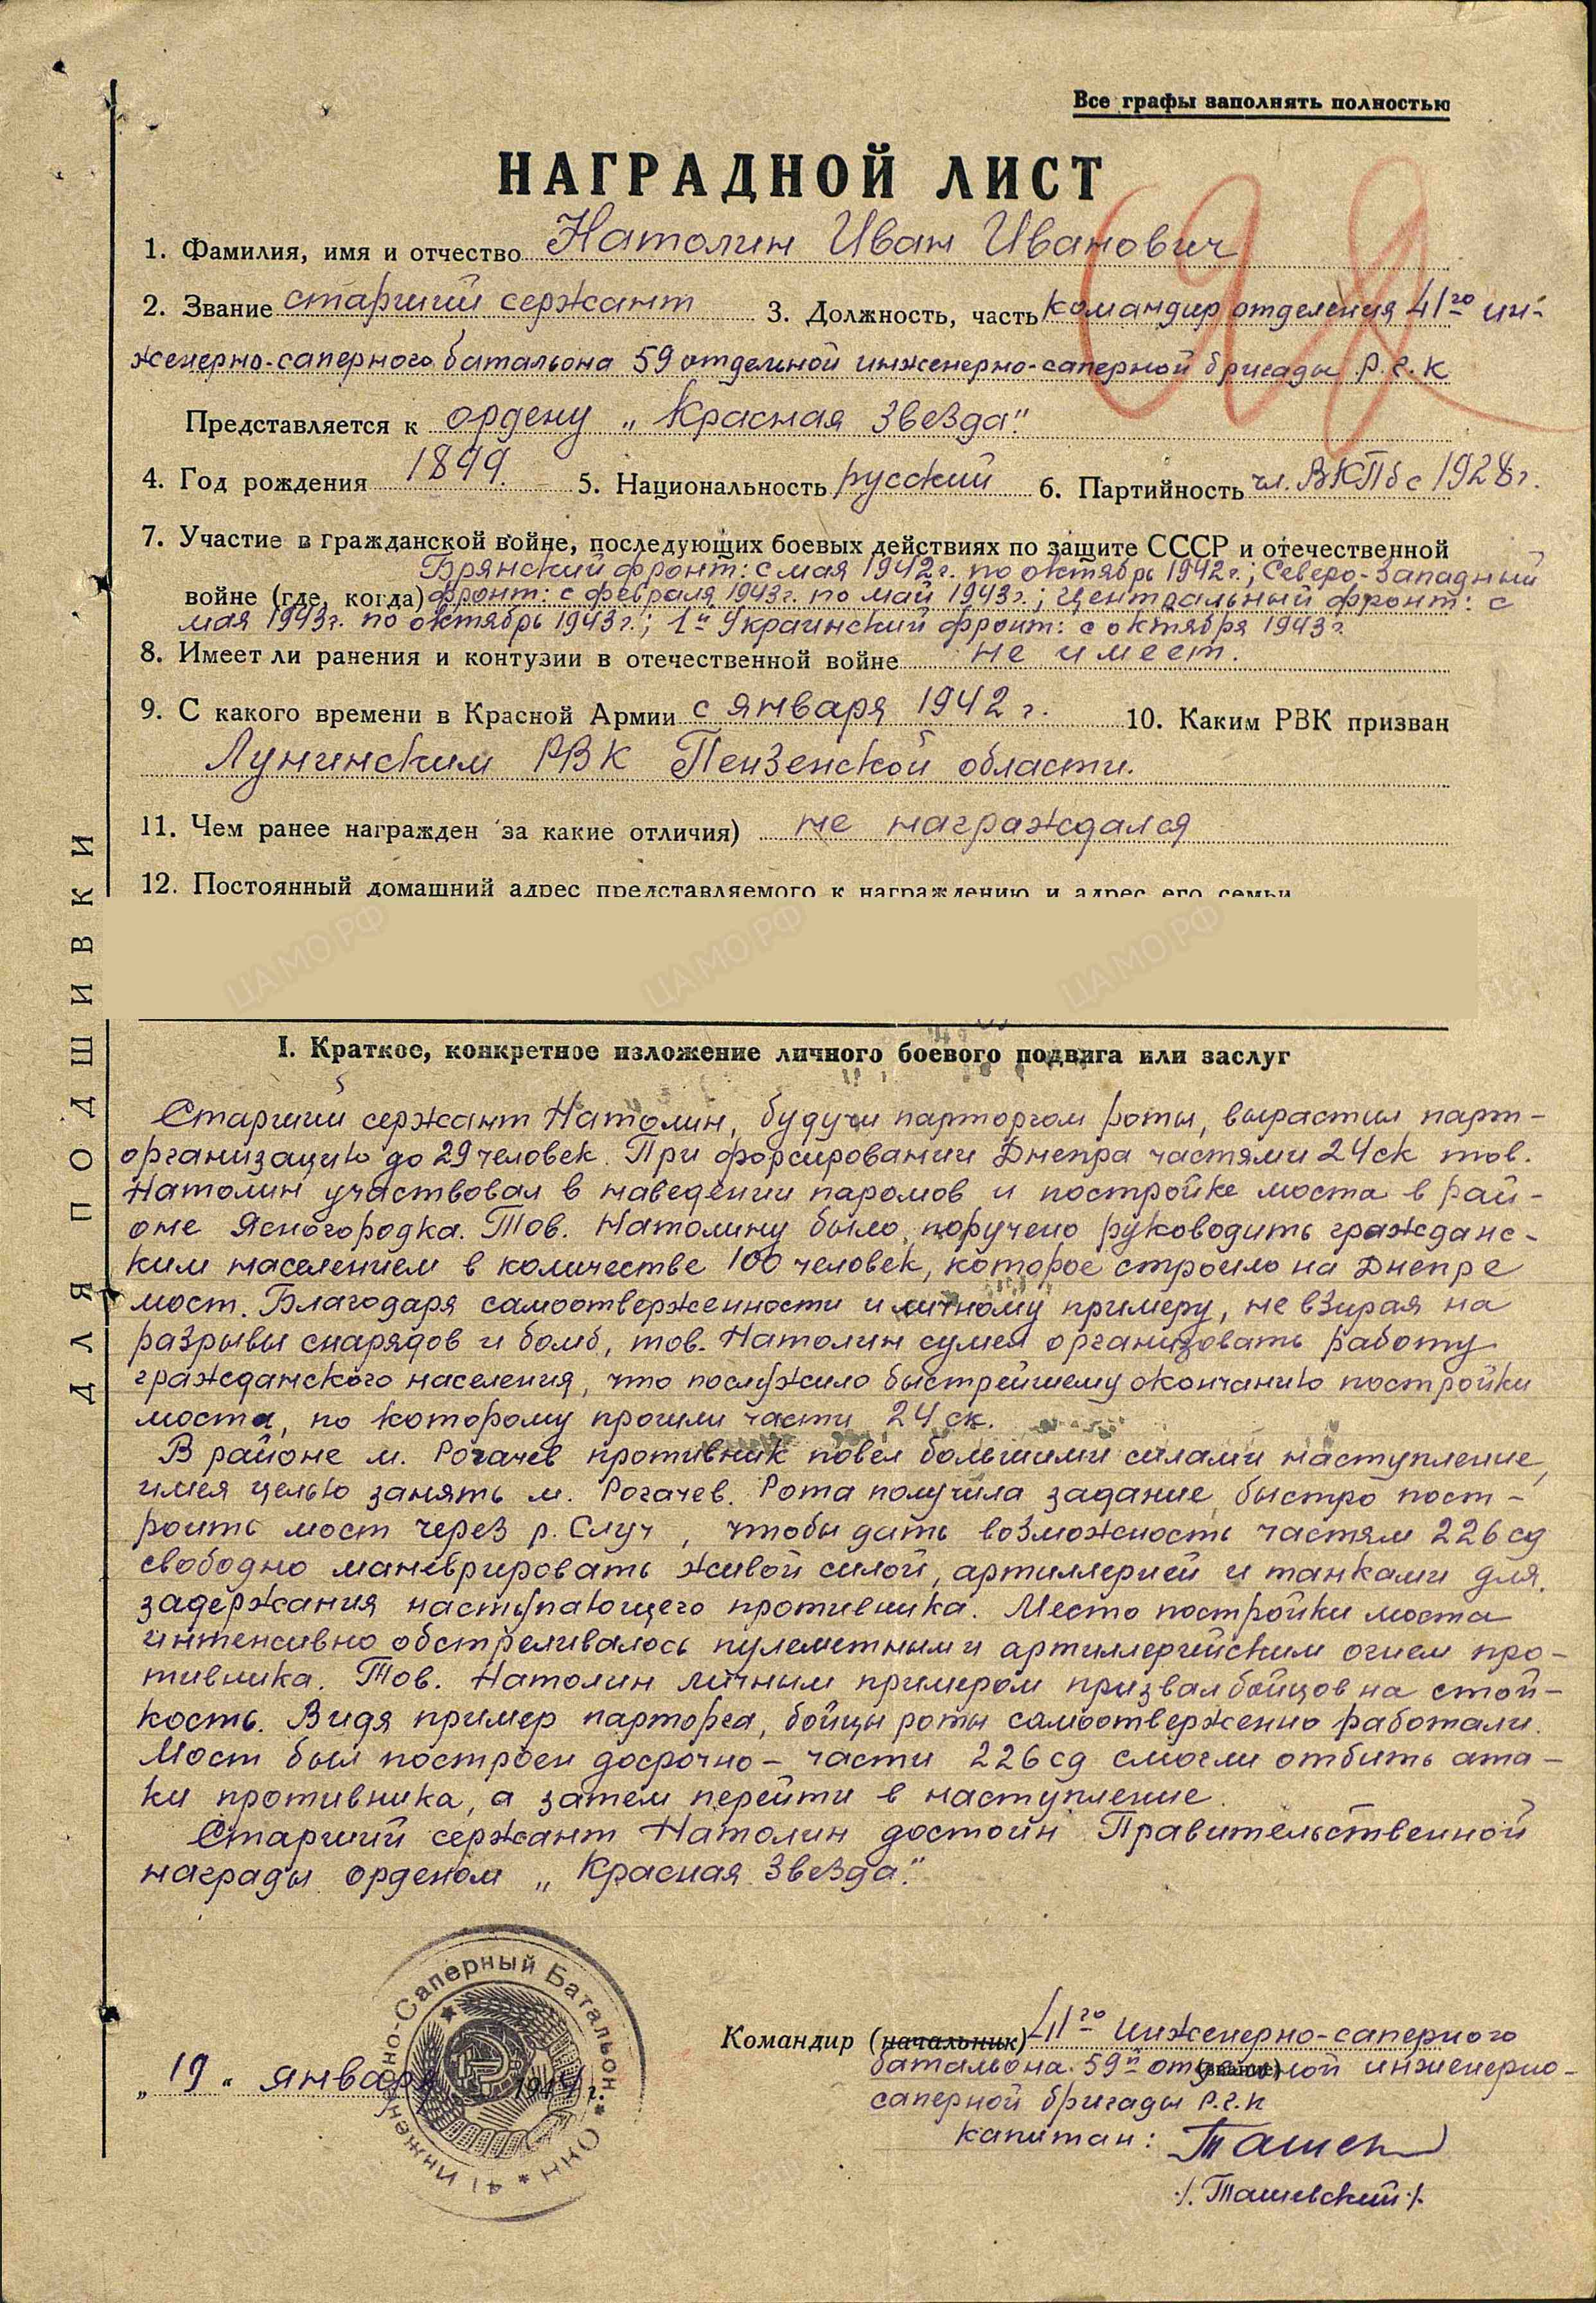 Все графы заполнять полностью
НАГРАДНОЙ ЛИСТ
1. Фамилия, имя и отчество Натолин Иван Иванович
2. Звание старший сержант 3. Должность, часть командир отделения 41го ин-
женерно-саперного батальона 59 отдельной инженерно-саперной бригады Р.Г.К
Представляется к ордену „Красная Звезда".
4. Год рождения 1899. 5. Национальность русский 6. Партийность чл. ВКПб с 1928г.
7. Участие в гражданской войне, последующих боевых действиях по защите СССР и отечественной
Брянский фронт: с мая 1942г. по октябрь 1942г.; Северо-Западный
войне (где, когда) фронт: с февраля 1943г. по май 1943г.; Центральный фронт: с
мая 1943г. по октябрь 1943г.; 1й Украинский фронт: с октября 1943г
8. Имеет ли ранения и контузии в отечественной войне не имеет.
9. С какого времени в Красной Армии с января 1942 г. 10. Каким РВК призван
Лунинским РВК Пензенской области.
11. Чем ранее награжден за какие отличия) не награждался
12. Постоянный домашний адрес представляемого к награждению и адрес его семьи
ДЛЯ ПОДШИВКИ
ЦАМО РФ ЦАМО РФ ЦАМО РФ
I. Краткое, конкретное изложение личного боевого подвига или заслуг
Старший сержант Натолин, будучи парторгом роты, вырастил парт-
организацию до 29 человек. При форсировании Днепра частями 24ск тов.
Натолин участвовал в наведении паромов и постройке моста в рай-
оне Ясногородка. Тов. Натолину было поручено руководить гражданс-
ким населением в количестве 100 человек, которое строило на Днепре
мост. Благодаря самоотверженности и личному примеру, не взирая на
разрывы снарядов и бомб, тов. Натолин сумел организовать работу
гражданского населения, что послужило быстрейшему окончанию постройки
моста, по которому прошли части 24 ск.
В районе м. Рогачев противник повел большими силами наступление,
имея целью занять м. Рогачев. Рота получила задание быстро пост-
роить мост через р. Случ, чтобы дать возможность частям 226 сд
свободно маневрировать живой силой, артиллерией и танками для
задержания наступающего противника. Место постройки моста
интенсивно обстреливалось пулеметным и артиллерийским огнем про-
тивника. Тов. Натолин личным примером призвал бойцов на стой-
кость. Видя пример парторга, бойцы роты самоотверженно работали.
Мост был построен досрочно – части 226 сд смогли отбить ата-
ки противника, а затем перейти в наступление.
Старший сержант Натолин достоин Правительственной
награды орденом „Красная Звезда".
Командир (начальник) 41го инженерно-саперного
батальона 59й отдельной инженерно-
саперной бригады Р.Г.К
капитан:
/. Ташевский ./.
„19" января 1944 г.
41 Инженерно-Саперный Батальон * НКО *